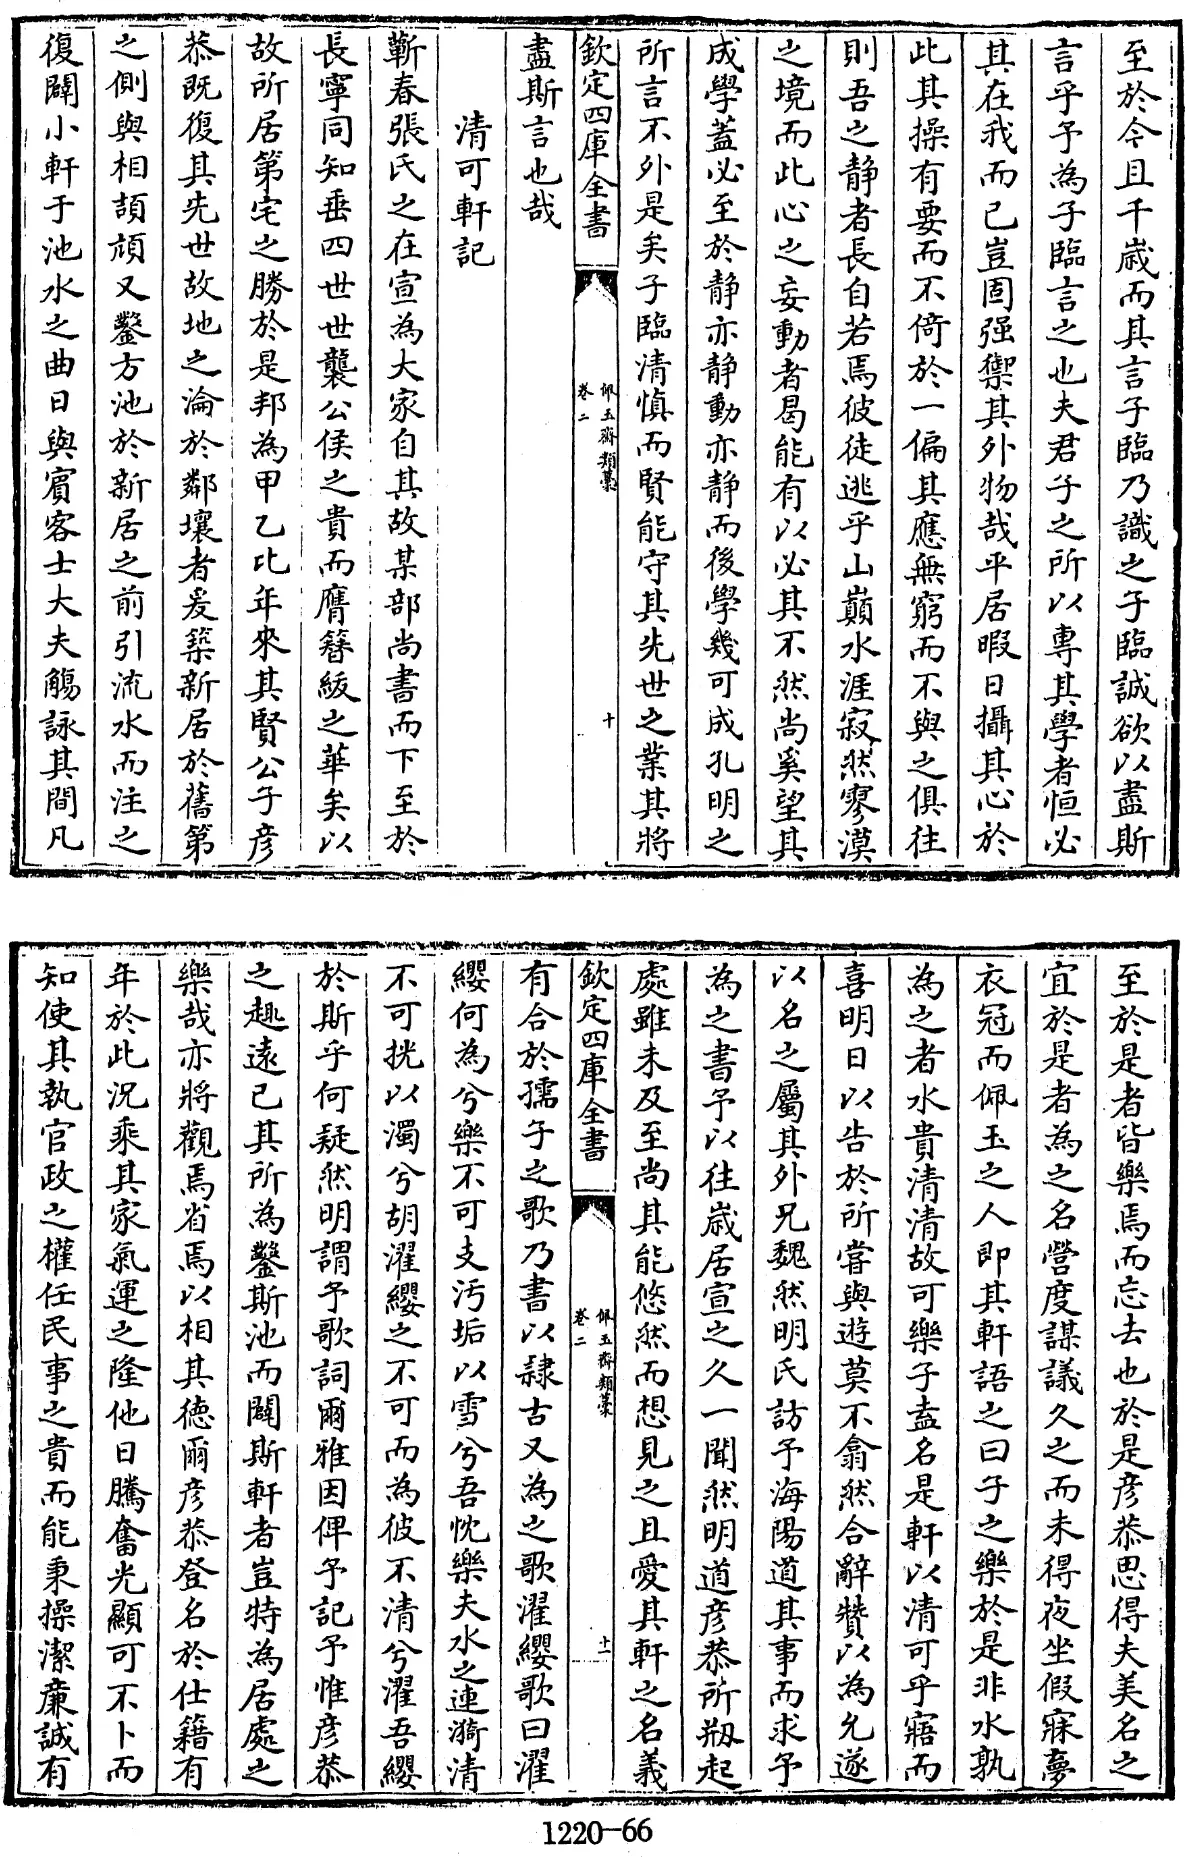 至於今且千歲而其言子臨乃識之子臨誠欲以盡斯
言乎予為子臨言之也夫君子之所以專其學者恒必
其在我而已豈固强禦其外物哉平居暇日攝其心於
此其操有要而不倚於一偏其應無窮而不與之俱往
則吾之静者長自若焉彼徒逃乎山巔水涯寂然寥漠
之境而此心之妄動者曷能有以必其不然尚奚望其
成學蓋必至於靜亦静動亦静而後學幾可成孔明之
所言不外是矣子臨清慎而賢能守其先世之業其將
欽定四庫全書
佩玉齋類藁
卷二
十
盡斯言也哉
清可軒記
蘄春張氏之在宣為大家自其故某部尚書而下至於
長寧同知垂四世世襲公侯之貴而膺簪紱之華矣以
故所居第宅之勝於是邦為甲乙比年來其賢公子彦
恭既復其先世故地之淪於鄰壤者爰築新居於舊第
之側與相頡頏又鑿方池於新居之前引流水而注之
復闢小軒于池水之曲日與賓客士大夫觴詠其間凡
至於是者皆樂焉而忘去也於是彦恭思得夫美名之
宜於是者為之名營度謀議久之而未得夜坐假寐夢
衣冠而佩玉之人即其軒語之曰子之樂於是非水孰
為之者水貴清清故可樂子盍名是軒以清可乎寤而
喜明日以告於所嘗與遊莫不翕然合辭贊以為允遂
以名之屬其外兄魏然明氏訪予海陽道其事而求予
為之書予以往歲居宣之久一聞然明道彦恭所剏起
處雖未及至尚其能悠然而想見之且愛其軒之名義
欽定四庫全書
佩玉齋類藁
卷二
十一
有合於孺子之歌乃書以隷古又為之歌濯纓歌曰濯
纓何為兮樂不可支污垢以雪兮吾忱樂夫水之連漪清
不可挠以濁兮胡濯纓之不可而為彼不清兮濯吾纓
於斯乎何疑然明謂予歌詞爾雅因俾予記予惟彦恭
之趣遠已其所為鑿斯池而闢斯軒者豈特為居處之
樂哉亦將觀焉省焉以相其徳爾彦恭登名於仕籍有
年於此况乘其家氣運之隆他日騰奮光顯可不卜而
知使其執官政之權任民事之貴而能秉操潔廉誠有
1220-66